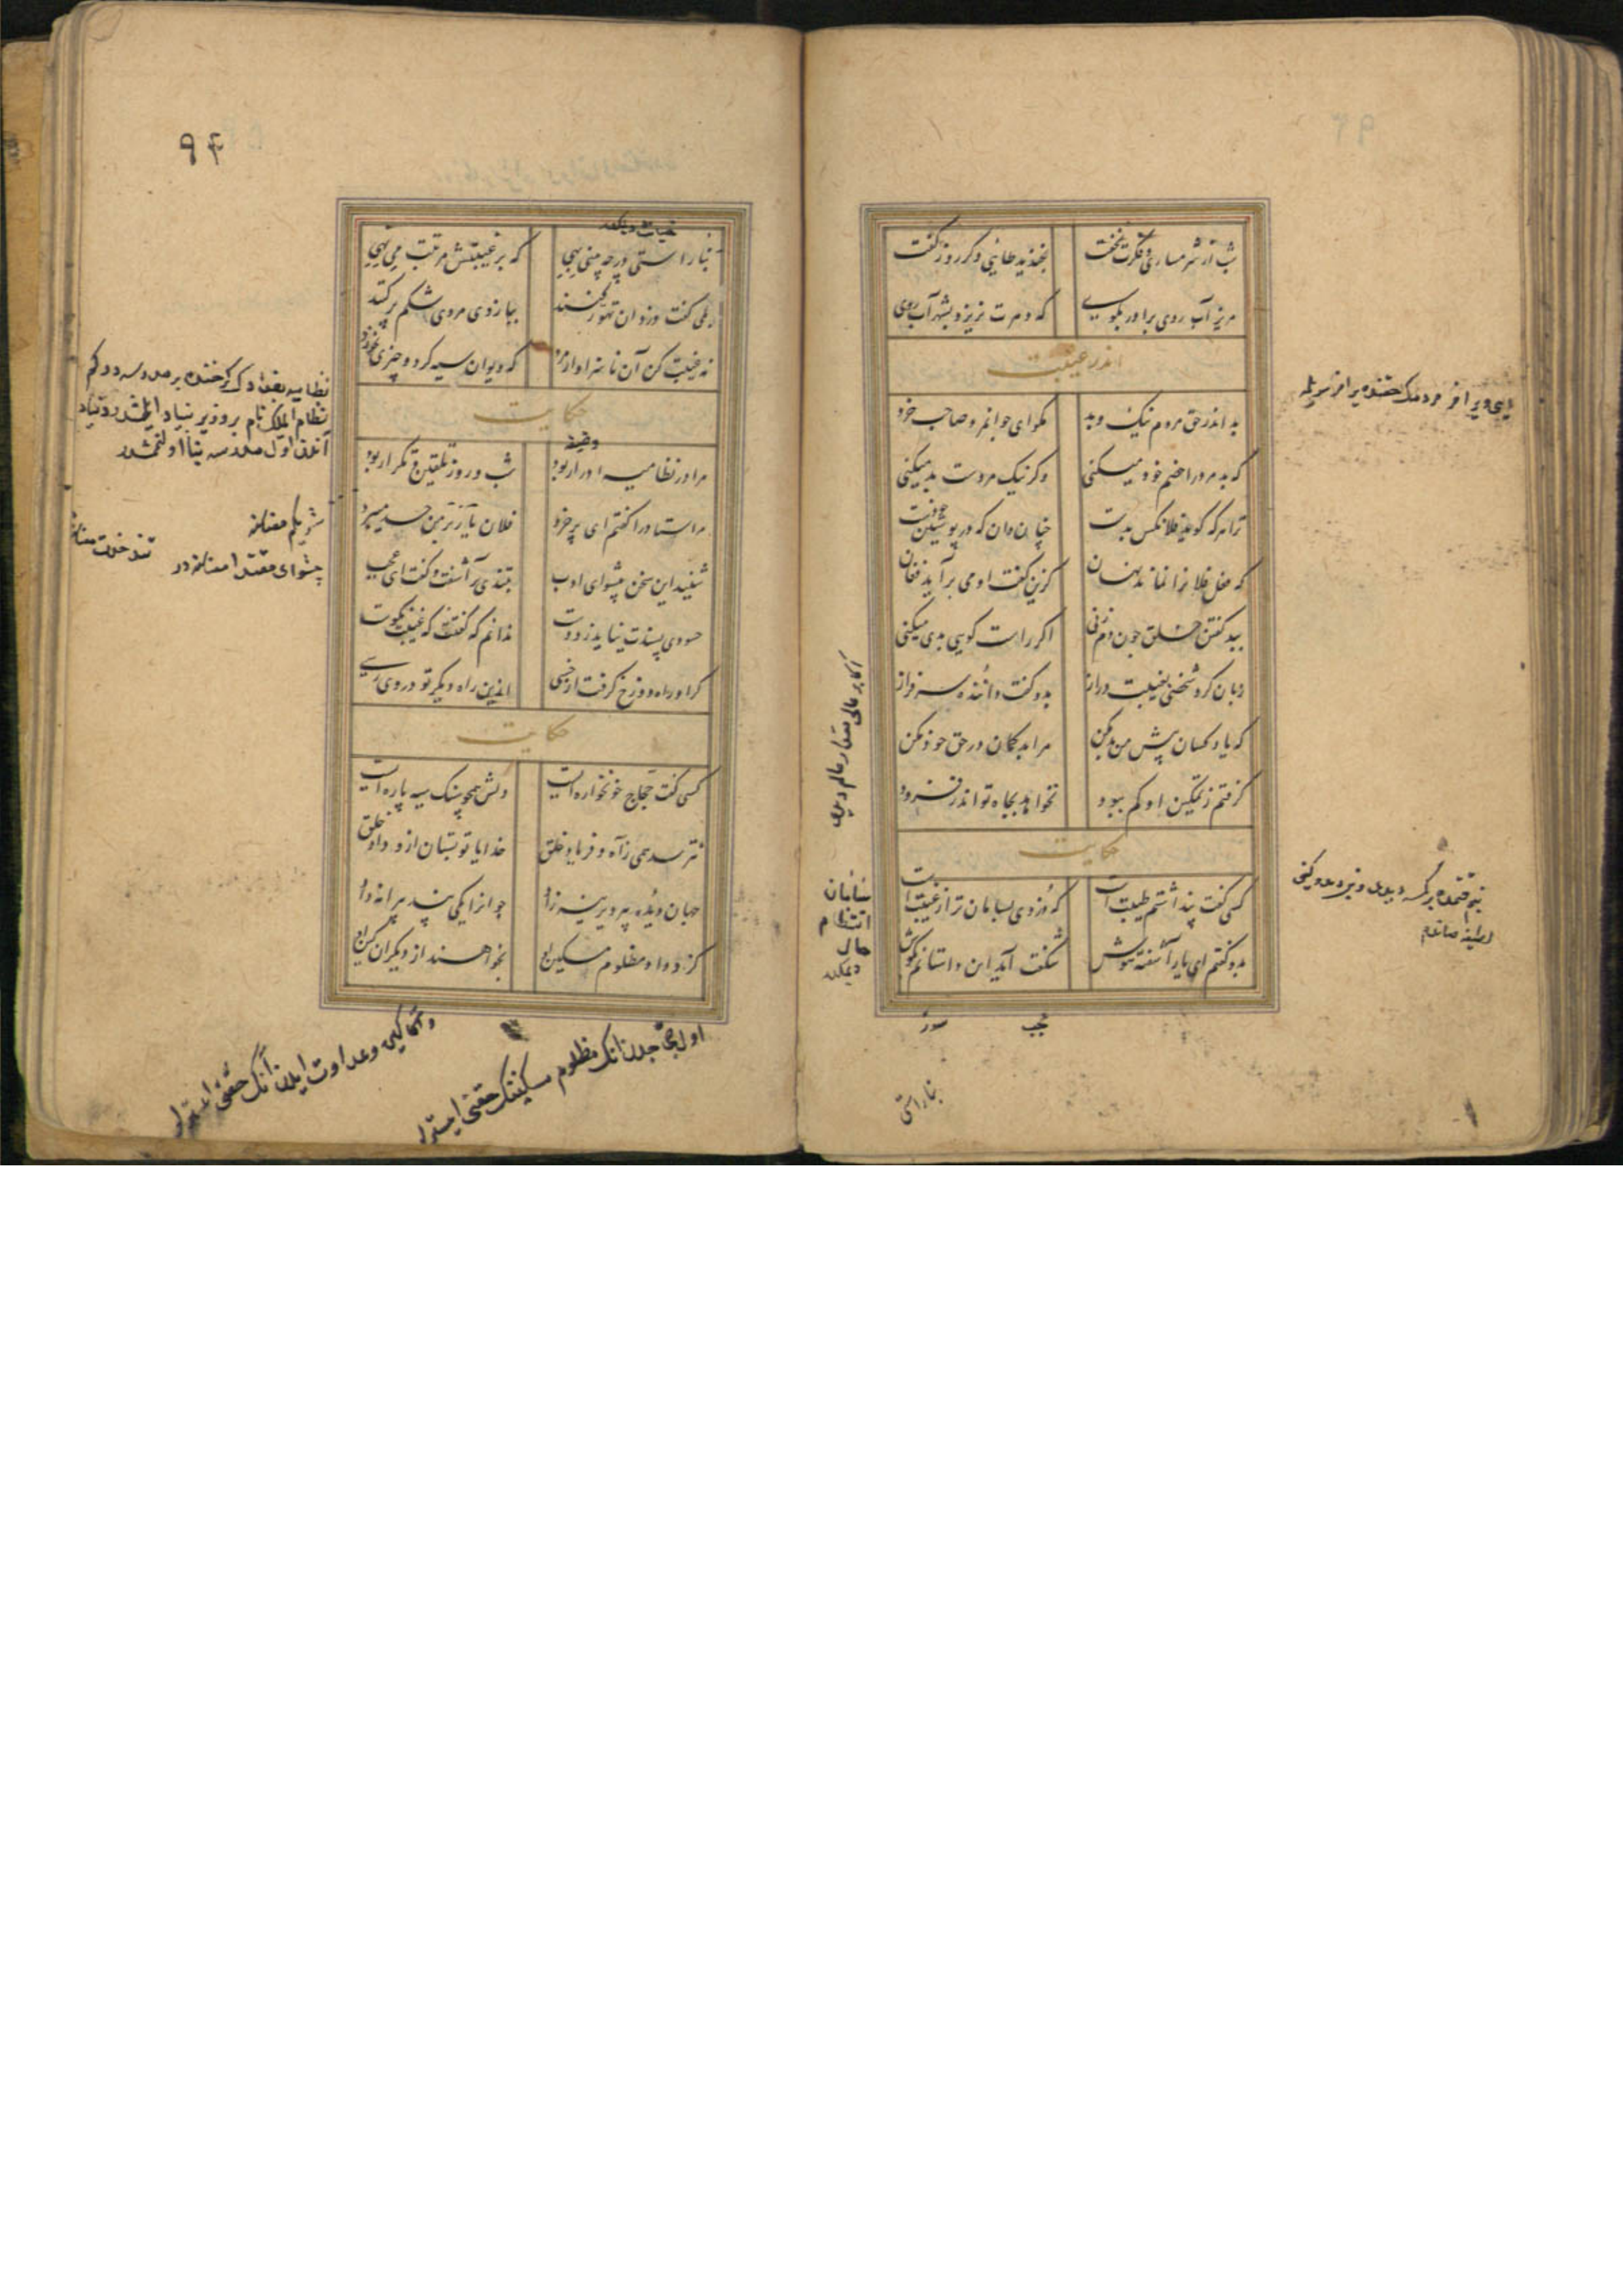 شب از شرمساری و فکرت نخفت
بخندید طائی دگر روز گفت
مریز آب روی برادر بکوی
که دهرت نریزد بشهر آب روی
اندر غیبت
بد اندر حق مردم نیک و بد
مکو ای جوانمرد صاحب خرد
که بد مرد را خصم خود میکنی
وکر نیک مردست بد میکنی
ترا هر که کوید فلانکس بدست
چنان دان که در پوستین خودست
که فعل فلانرا نماند نهان
کزین گفت او می برآید فغان
ببد کفتن خلق چون دم زنی
اکر راست کویی بدی میکنی
زبان کرد شخصی بغیبت دراز
بدو کفت داننده سرفراز
که یاد کسان پیش من بد مکن
مرا بد کمان در حق خود مکن
کرفتم ز تمکین او کم ببود
نخواهد بجاه تو اندر فزود
حکایت
کسی کفت پنداشتم طیبت است
که دزدی بسامان تر از غیبت است
بدو کفتم ای یار آشفته هوش
شکفت آمد این داستانم بکوش
عجب
بناراستی
سامان
انتظام
حال
دیمکدر
۹۴
بناراستی در چه بینی بهی
که بر غیبتش مرتبت می نهی
بلی کفت دزدان تهور کنند
ببازوی مردی شکم پر کنند
نه غیبت کن آن ناسزاوار مرد
که دیوان سیه کرد و چیزی نخورد
حکایت
مرا در نظامیه ادرار بود
شب و روز تلقین و تکرار بود
مر استاد را کفتم ای پر خرد
فلان یار بر من حسد میبرد
شنید این سخن پیشوای ادب
بتندی برآشفت و کفت ای عجب
حسودی پسندت نیاید ز دوست
ندانم که کفتت که غیبت نکوست
کر او راه دوزخ کرفت از خسی
ازین راه دیکر تو در وی رسی
حکایت
کسی کفت حجاج خونخواره ایست
دلش همچو سنک سیه پاره ایست
نترسد همی ز آه و فریاد خلق
خدایا تو بستان ازو داد خلق
جهان دیده پیر دیرینه زاد
جوانرا یکی پند پیرانه داد
کزو داد مظلوم مسکین او
بخواهند از دیکران کین او
پیشوای مقتدا معناسنه در